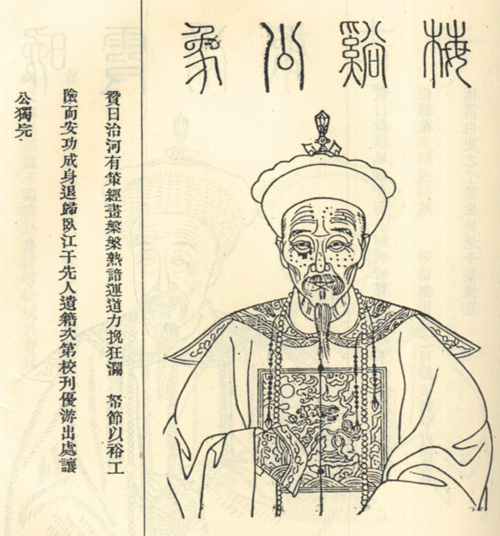 梅谿公象
贊曰治河有策經畫槃槃熟諳運道力挽狂瀾 帑節以裕工
險而安功成身退歸臥江干先人遺籍次第校刊優游出處讓
公獨完